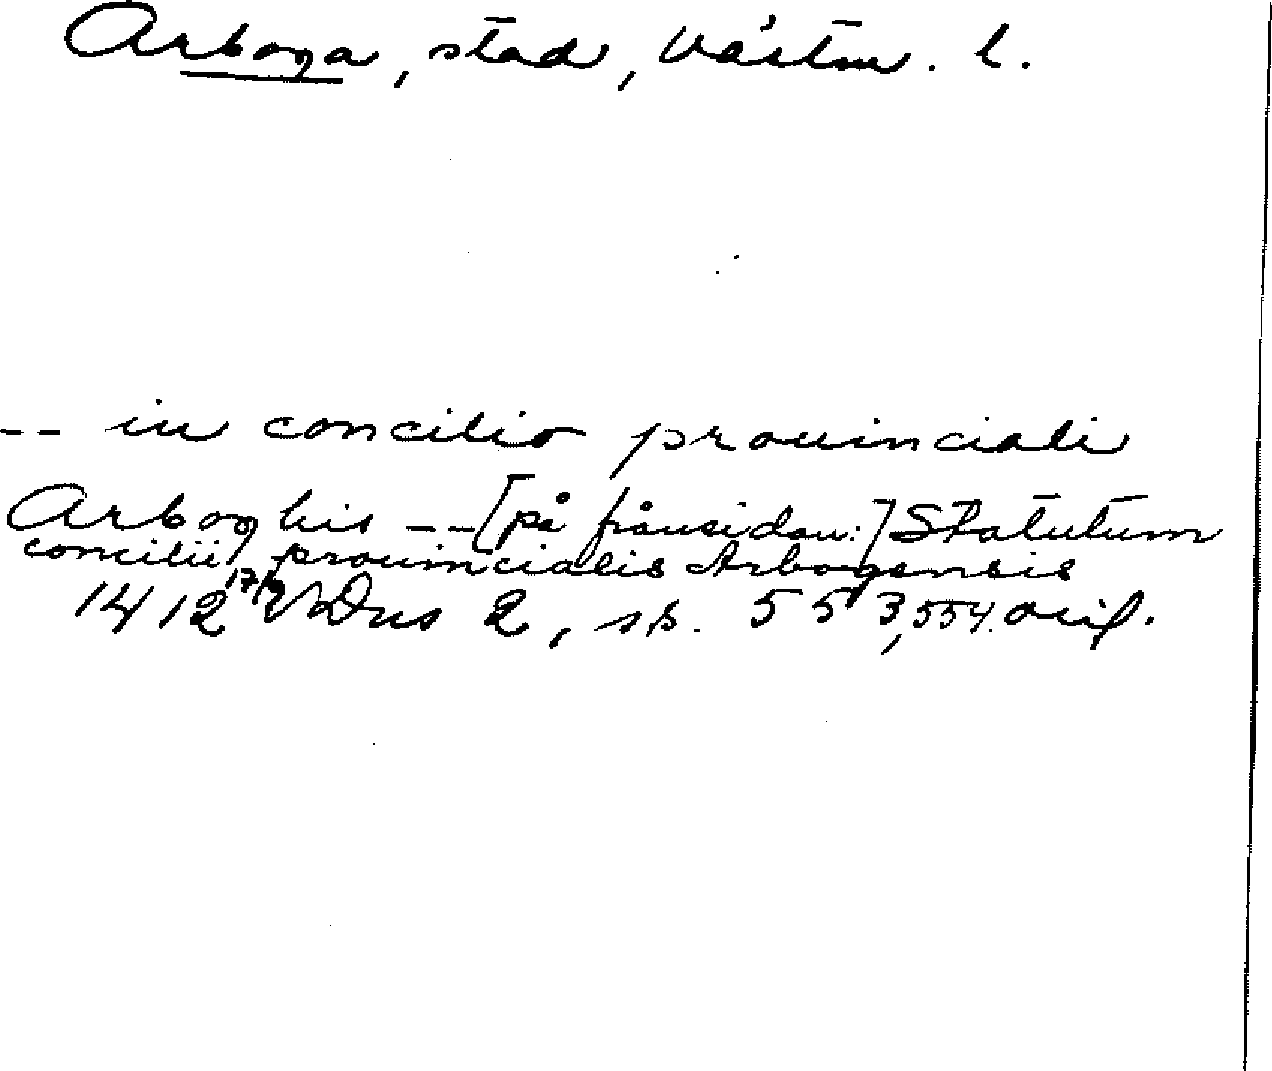 Arboga, stad, Västm. l.
-- in concilio prouinciali
Arboghis -- [på frånsidan:] Statutum
concilii prouincialis Arbogensis
1412 17/9 SDns 2, s. 553, 554. avil.